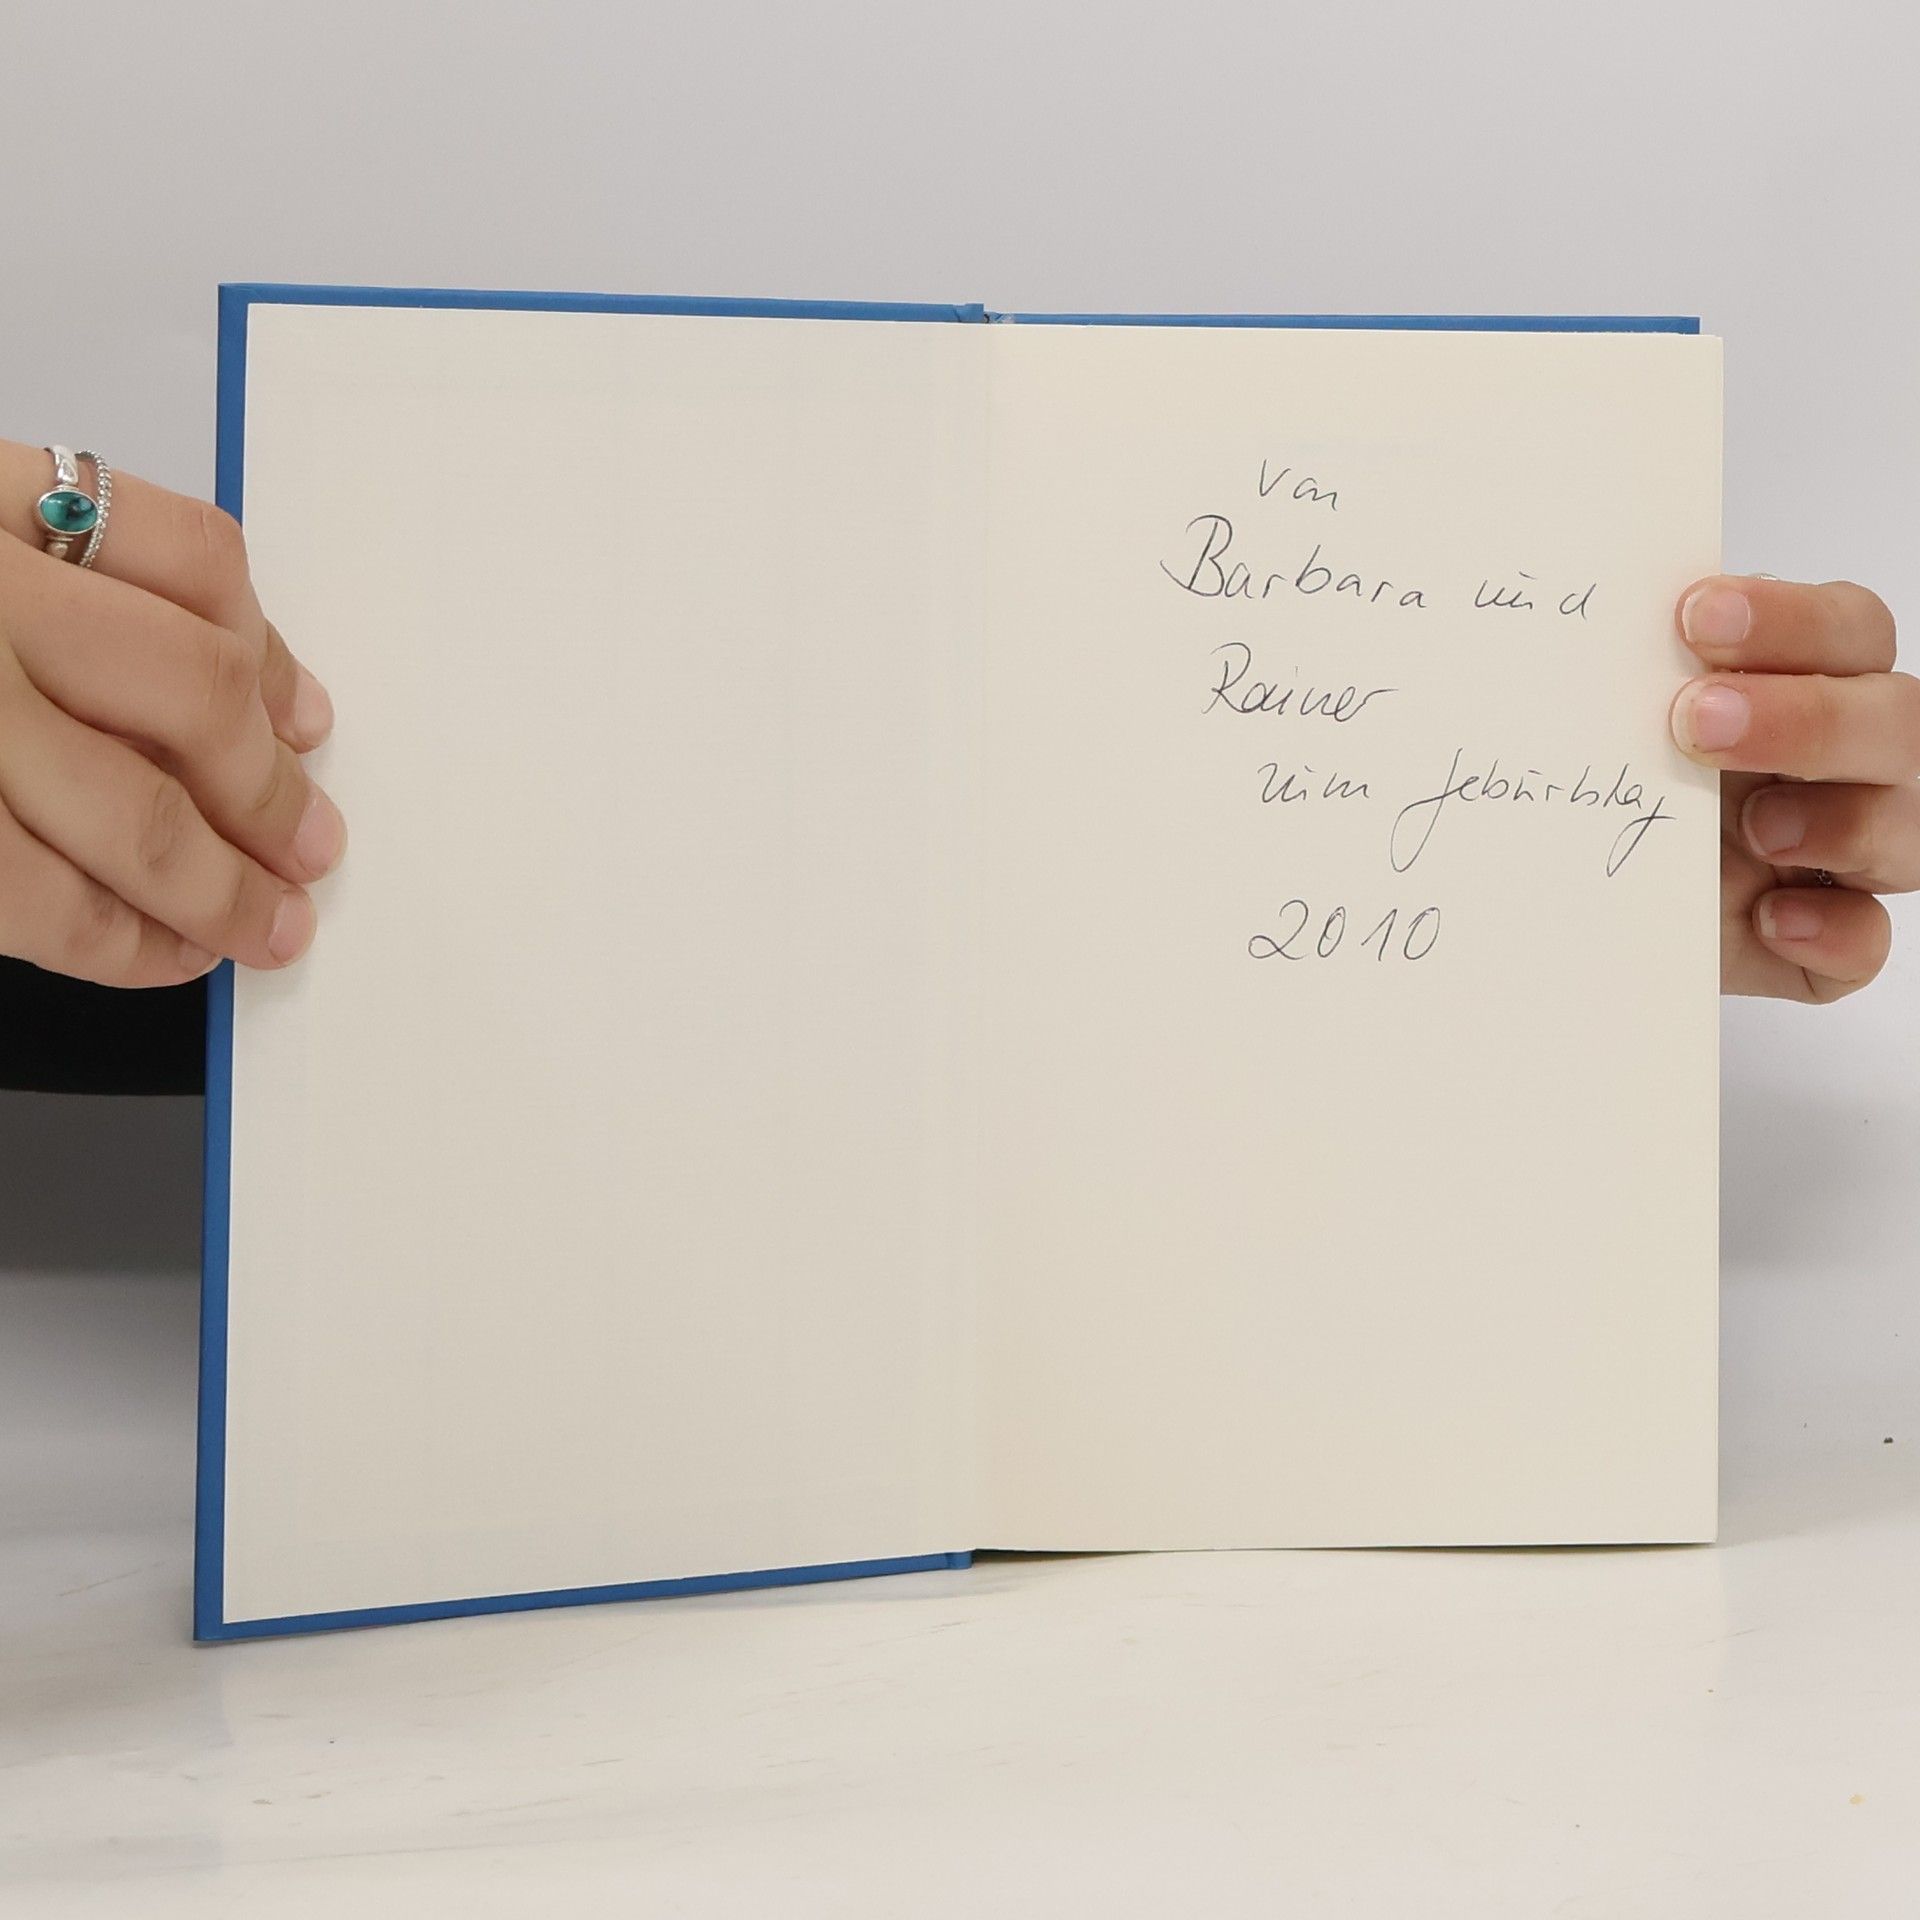 von
Barbara und
Rainer
zum Geburtstag
2010